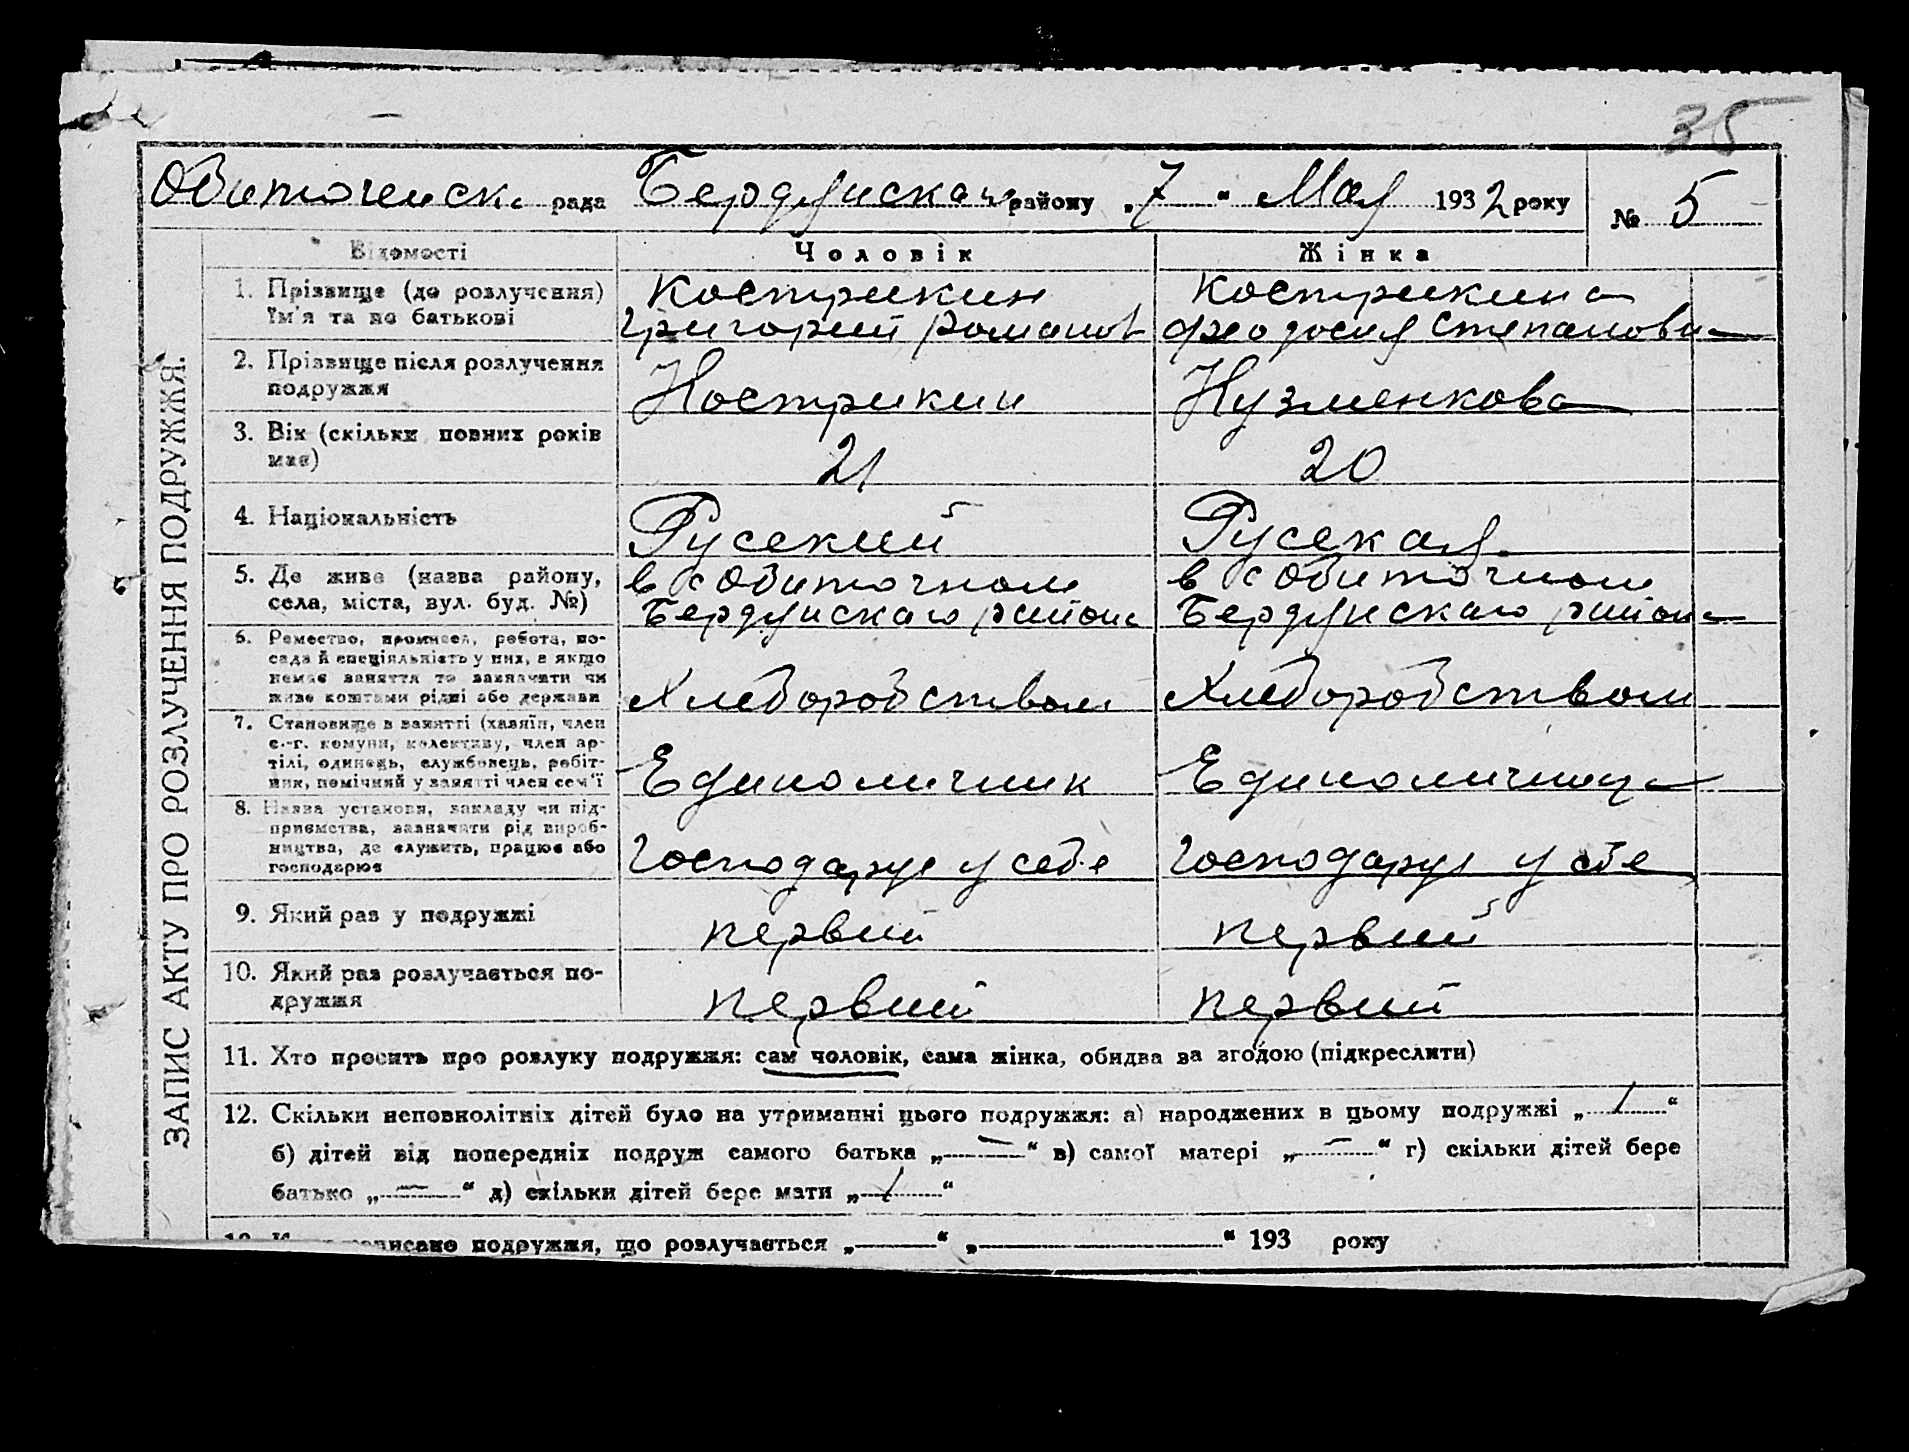 35
Обиточенск. рада Бердянскаго району „7“ Мая 1932 року № 5
ЗАПИС АКТУ ПРО РОЗЛУЧЕННЯ ПОДРУЖЖЯ.
Відомості Чоловік Жінка
1. Прізвище (до розлучення) Кострикин Кострикина
ім'я та по батькові Григорий Романов Феодосия Степановна
2. Прізвище після розлучення
подружжя Кострикин Кузменкова
3. Вік (скільки повних років
має) 21 20
4. Національність Русский Русская
5. Де живе (назва району, в с Обиточном в с Обиточном
села, міста, вул. буд. №) Бердянскаго района Бердянскаго района
6. Ремество, промисел, робота, по-
сада й спеціяльність у них, а якщо
немає заняття то зазначити чи
живе коштами рідні або держави Хлеборобством Хлеборобством
7. Становище в занятті (хазяїн, член
с.-г. комуни, колективу, член ар-
тілі, одинець, службовець, робіт-
ник, помічний у занятті член сем'ї Единоличник Единоличница
8. Назва установи, закладу чи під-
приємства, зазначити рід вироб-
ництва, де служить, працює або
господарює Господарує у себе Господарує у себе
9. Який раз у подружжі первий первий
10. Який раз розлучається по-
дружжя первий первий
11. Хто просить про розлуку подружжя: сам чоловік, сама жінка, обидва за згодою (підкреслити)
12. Скільки неповнолітніх дітей було на утриманні цього подружжя: а) народжених в цьому подружжі „1“
б) дітей від попередніх подруж самого батька „—“ в) самої матері „—“ г) скільки дітей бере
батько „—“ д) скільки дітей бере мати „1“
подружжя, що розлучається „ “ „ “ 193 року